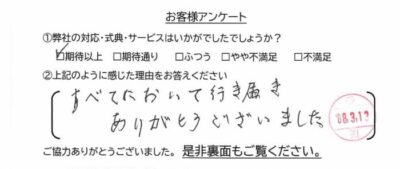 お客様アンケート
①弊社の対応・式典・サービスはいかがでしたでしょうか？
☑期待以上 □期待通り □ふつう □やや不満足 □不満足
②上記のように感じた理由をお答えください
すべてにおいて行き届き
ありがとうございました
ご協力ありがとうございました。是非裏面もご覧ください。